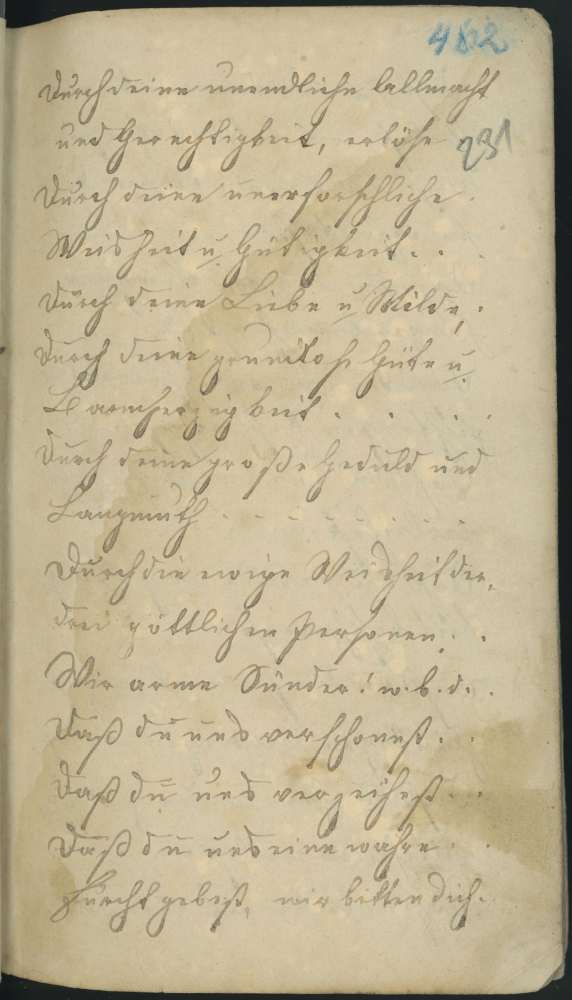 482
Durch deine unendliche Allmacht
und Gerechtigkeit, erlöse
231
Durch deine unerforschliche
Weisheit u. Gütigkeit . . .
Durch deine Liebe u. Milde, .
Durch deine grundlose Güte u.
Barmherzigkeit . . . .
Durch deine große Geduld und
Langmuth - - - - - - - -
Durch die ewige Weisheit der
drei göttlichen Personen. .
Wir arme Sünder! w. b. d. .
Daß du uns verschonest . .
Daß du uns verzeihest . .
Daß du uns eine wahre .
Furcht gebest, wir bitten dich.